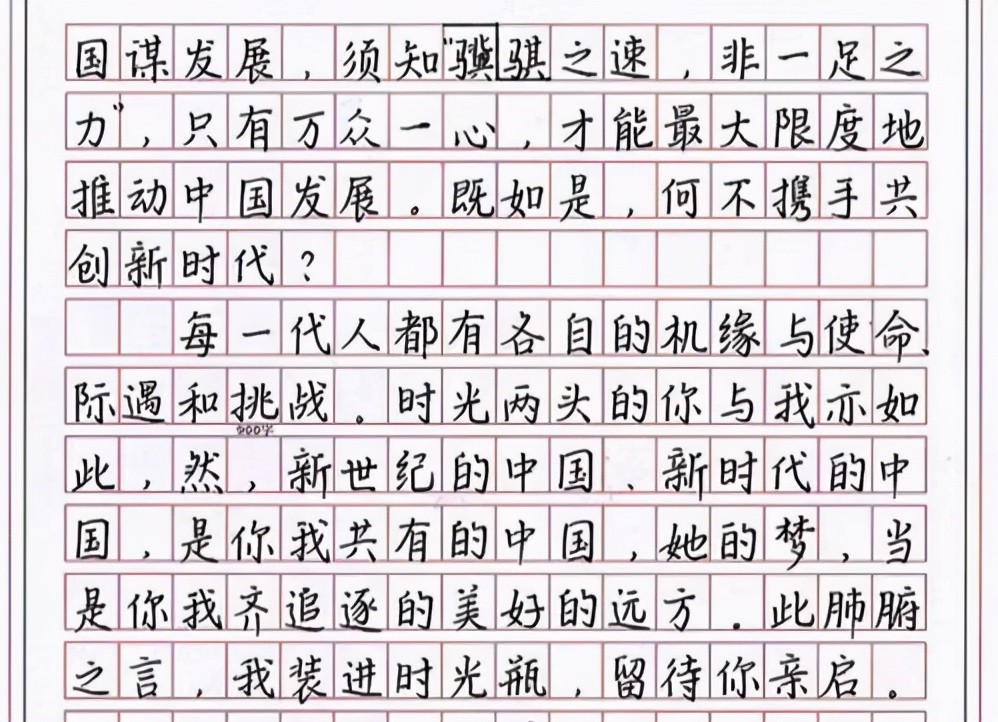 国谋发展，须知“骥骐之速，非一足之
力”，只有万众一心，才能最大限度地
推动中国发展。既如是，何不携手共
创新时代？
每一代人都有各自的机缘与使命、
际遇和挑战。时光两头的你与我亦如
900字
此，然，新世纪的中国、新时代的中
国，是你我共有的中国，她的梦，当
是你我齐追逐的美好的远方。此肺腑
之言，我装进时光瓶，留待你亲启。